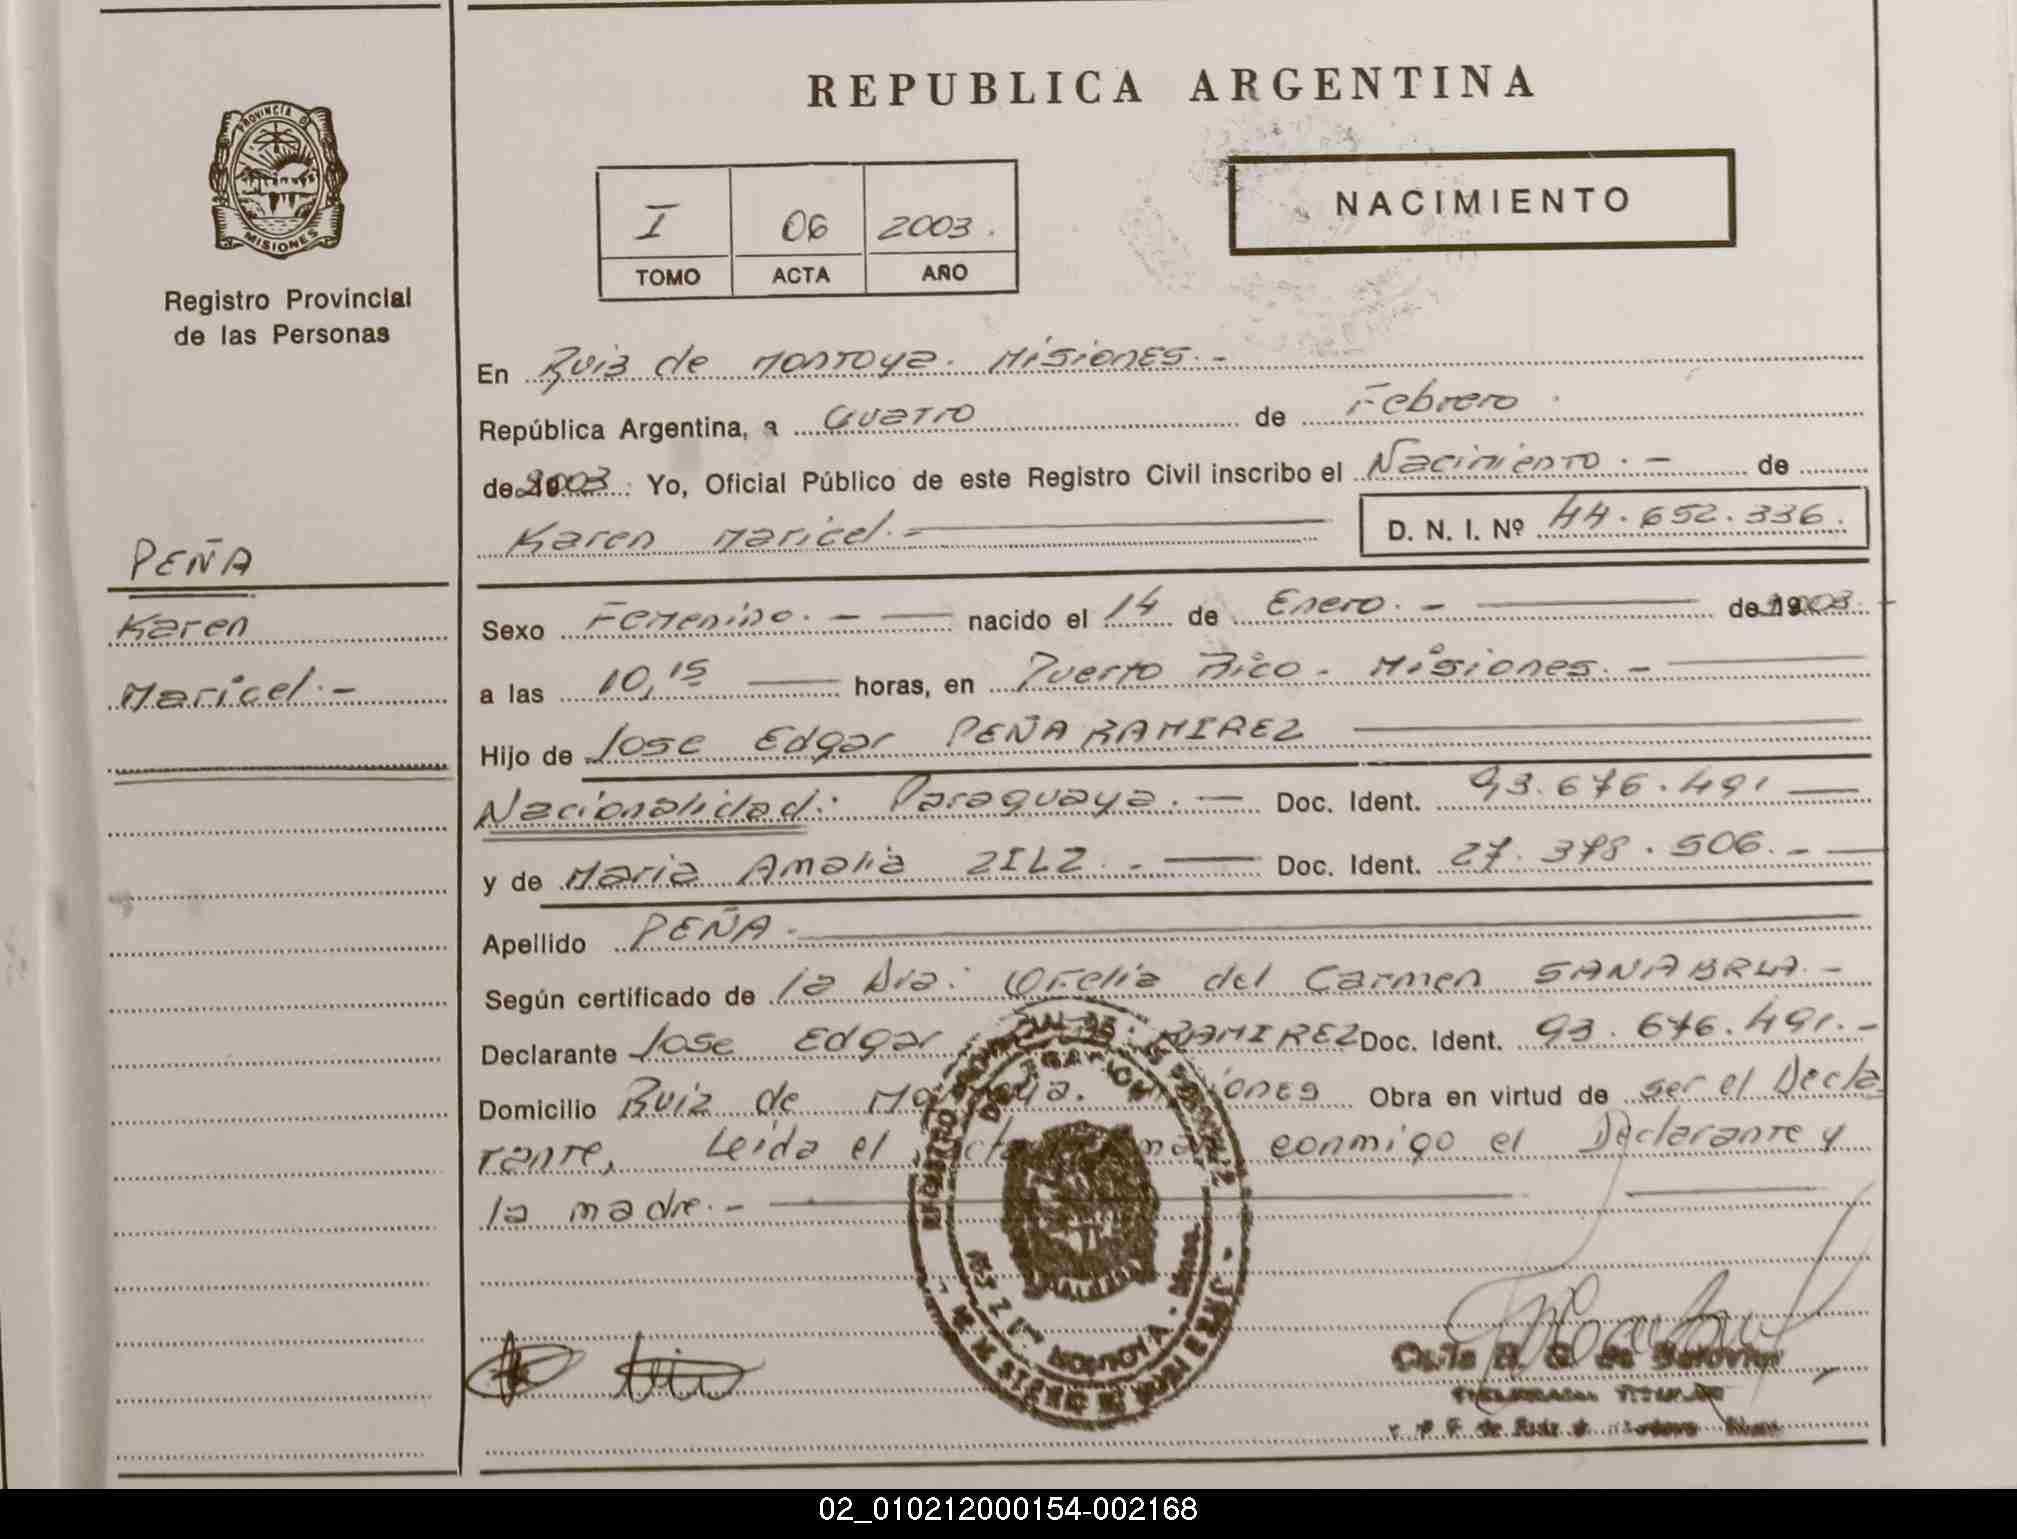 REPUBLICA ARGENTINA
PROVINCIA D
MISIONES
Registro Provincial
de las Personas
NACIMIENTO
I 06 2003.
TOMO ACTA AÑO
En Ruiz de Montoya. Misiones.-
República Argentina, a Cuatro de Febrero.
de 2003. Yo, Oficial Público de este Registro Civil inscribo el Nacimiento.- de
Karen Maricel.- D. N. I. Nº 44.652.336.
PEÑA
Karen
Maricel.-
Sexo Femenino.- nacido el 14 de Enero.- de 2003.
a las 10,15 horas, en Puerto Rico. Misiones.-
Hijo de Jose Edgar PEÑA RAMIREZ
Nacionalidad: Paraguaya.- Doc. Ident. 93.676.491
y de Maria Amalia ZILZ.- Doc. Ident. 27.378.506.-
Apellido PEÑA.
Según certificado de la Dra: Ofelia del Carmen SANABRIA.-
Declarante Jose Edgar RAMIREZ Doc. Ident. 93.676.491.-
Domicilio Ruiz de Obra en virtud de ser el Decla
rante, Leida el conmigo el Declarante y
la madre.-
02_010212000154-002168